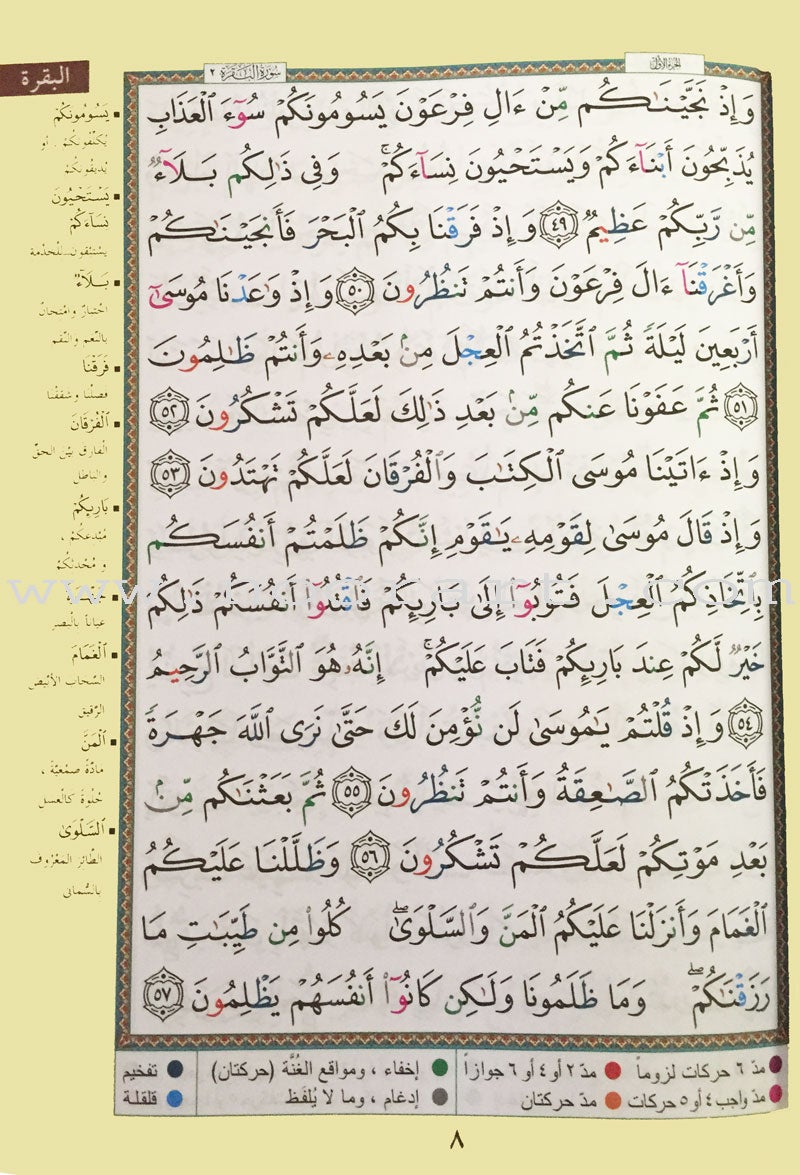 الجزء الأول
سُورَةُ البَقَرَة ٢
البقرة
وَإِذْ نَجَّيْنَٰكُم مِّنْ ءَالِ فِرْعَوْنَ يَسُومُونَكُمْ سُوٓءَ ٱلْعَذَابِ
يُذَبِّحُونَ أَبْنَآءَكُمْ وَيَسْتَحْيُونَ نِسَآءَكُمْ ۚ وَفِى ذَٰلِكُم بَلَآءٌ
مِّن رَّبِّكُمْ عَظِيمٌ ٤٩ وَإِذْ فَرَقْنَا بِكُمُ ٱلْبَحْرَ فَأَنجَيْنَٰكُمْ
وَأَغْرَقْنَآ ءَالَ فِرْعَوْنَ وَأَنتُمْ تَنظُرُونَ ٥٠ وَإِذْ وَٰعَدْنَا مُوسَىٰٓ
أَرْبَعِينَ لَيْلَةً ثُمَّ ٱتَّخَذْتُمُ ٱلْعِجْلَ مِنۢ بَعْدِهِۦ وَأَنتُمْ ظَٰلِمُونَ
٥١ ثُمَّ عَفَوْنَا عَنكُم مِّنۢ بَعْدِ ذَٰلِكَ لَعَلَّكُمْ تَشْكُرُونَ ٥٢
وَإِذْ ءَاتَيْنَا مُوسَى ٱلْكِتَٰبَ وَٱلْفُرْقَانَ لَعَلَّكُمْ تَهْتَدُونَ ٥٣
وَإِذْ قَالَ مُوسَىٰ لِقَوْمِهِۦ يَٰقَوْمِ إِنَّكُمْ ظَلَمْتُمْ أَنفُسَكُم
بِٱتِّخَاذِكُمُ ٱلْعِجْلَ فَتُوبُوٓا۟ إِلَىٰ بَارِئِكُمْ فَٱقْتُلُوٓا۟ أَنفُسَكُمْ ذَٰلِكُمْ
خَيْرٌ لَّكُمْ عِندَ بَارِئِكُمْ فَتَابَ عَلَيْكُمْ ۚ إِنَّهُۥ هُوَ ٱلتَّوَّابُ ٱلرَّحِيمُ
٥٤ وَإِذْ قُلْتُمْ يَٰمُوسَىٰ لَن نُّؤْمِنَ لَكَ حَتَّىٰ نَرَى ٱللَّهَ جَهْرَةً
فَأَخَذَتْكُمُ ٱلصَّٰعِقَةُ وَأَنتُمْ تَنظُرُونَ ٥٥ ثُمَّ بَعَثْنَٰكُم مِّنۢ
بَعْدِ مَوْتِكُمْ لَعَلَّكُمْ تَشْكُرُونَ ٥٦ وَظَلَّلْنَا عَلَيْكُمُ
ٱلْغَمَامَ وَأَنزَلْنَا عَلَيْكُمُ ٱلْمَنَّ وَٱلسَّلْوَىٰ ۖ كُلُوا۟ مِن طَيِّبَٰتِ مَا
رَزَقْنَٰكُمْ ۖ وَمَا ظَلَمُونَا وَلَٰكِن كَانُوٓا۟ أَنفُسَهُمْ يَظْلِمُونَ ٥٧
يَسُومُونَكُمْ
يُكَلِّفُونَكُمْ . أو
يُذِيقُونَكُمْ
يَسْتَحْيُونَ
نِسَاءَكُمْ
يستبقون للخدمة
بَلَاءٌ
اختبارٌ وامْتِحانٌ
بالنِّعم والنِّقم
فَرَقْنَا
فصلْنا وشققْنا
ٱلْفُرْقَانَ
الفارق بيْن الحقّ
والباطل
بَارِئِكُمْ
مُبْدِعكُمْ ،
و مُحْدِثكُمْ
عياناً بالبصرِ
ٱلْغَمَامَ
السَّحاب الأبْيض
الرّقيق
ٱلْمَنَّ
مادّة صمْغيّة ،
حُلْوة كالعسل
ٱلسَّلْوَىٰ
الطّائر المَعْرُوف
بالسُّمانى
مدّ ٦ حركات لزوماً
مدّ ٢ أو ٤ أو ٦ جوازاً
إخفاء ، ومواقع الغُنَّة (حركتان)
تفخيم
مدّ واجب ٤ أو ٥ حركات
مدّ حركتان
إدغام ، وما لا يُلفَظ
قلقلة
٨